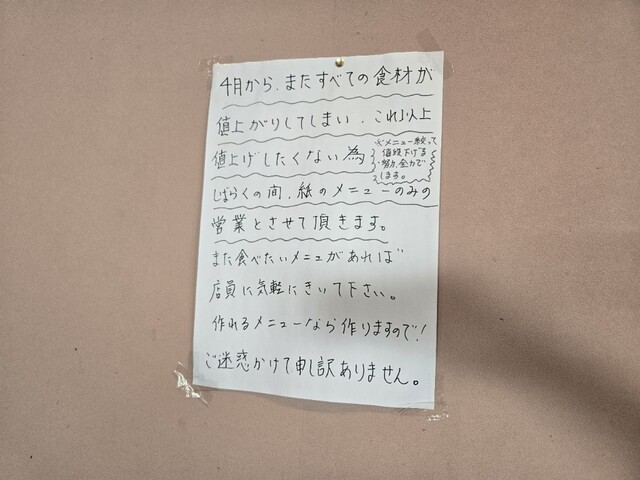 4月から、またすべての食材が
値上がりしてしまい、これ以上
値上げしたくない為
※メニュー絞って
値段下げる
努力、全力で
します。
しばらくの間、紙のメニューのみの
営業とさせて頂きます。
また食べたいメニュがあれば
店員に気軽にきいて下さい。
作れるメニューなら作りますので!
ご迷惑かけて申し訳ありません。